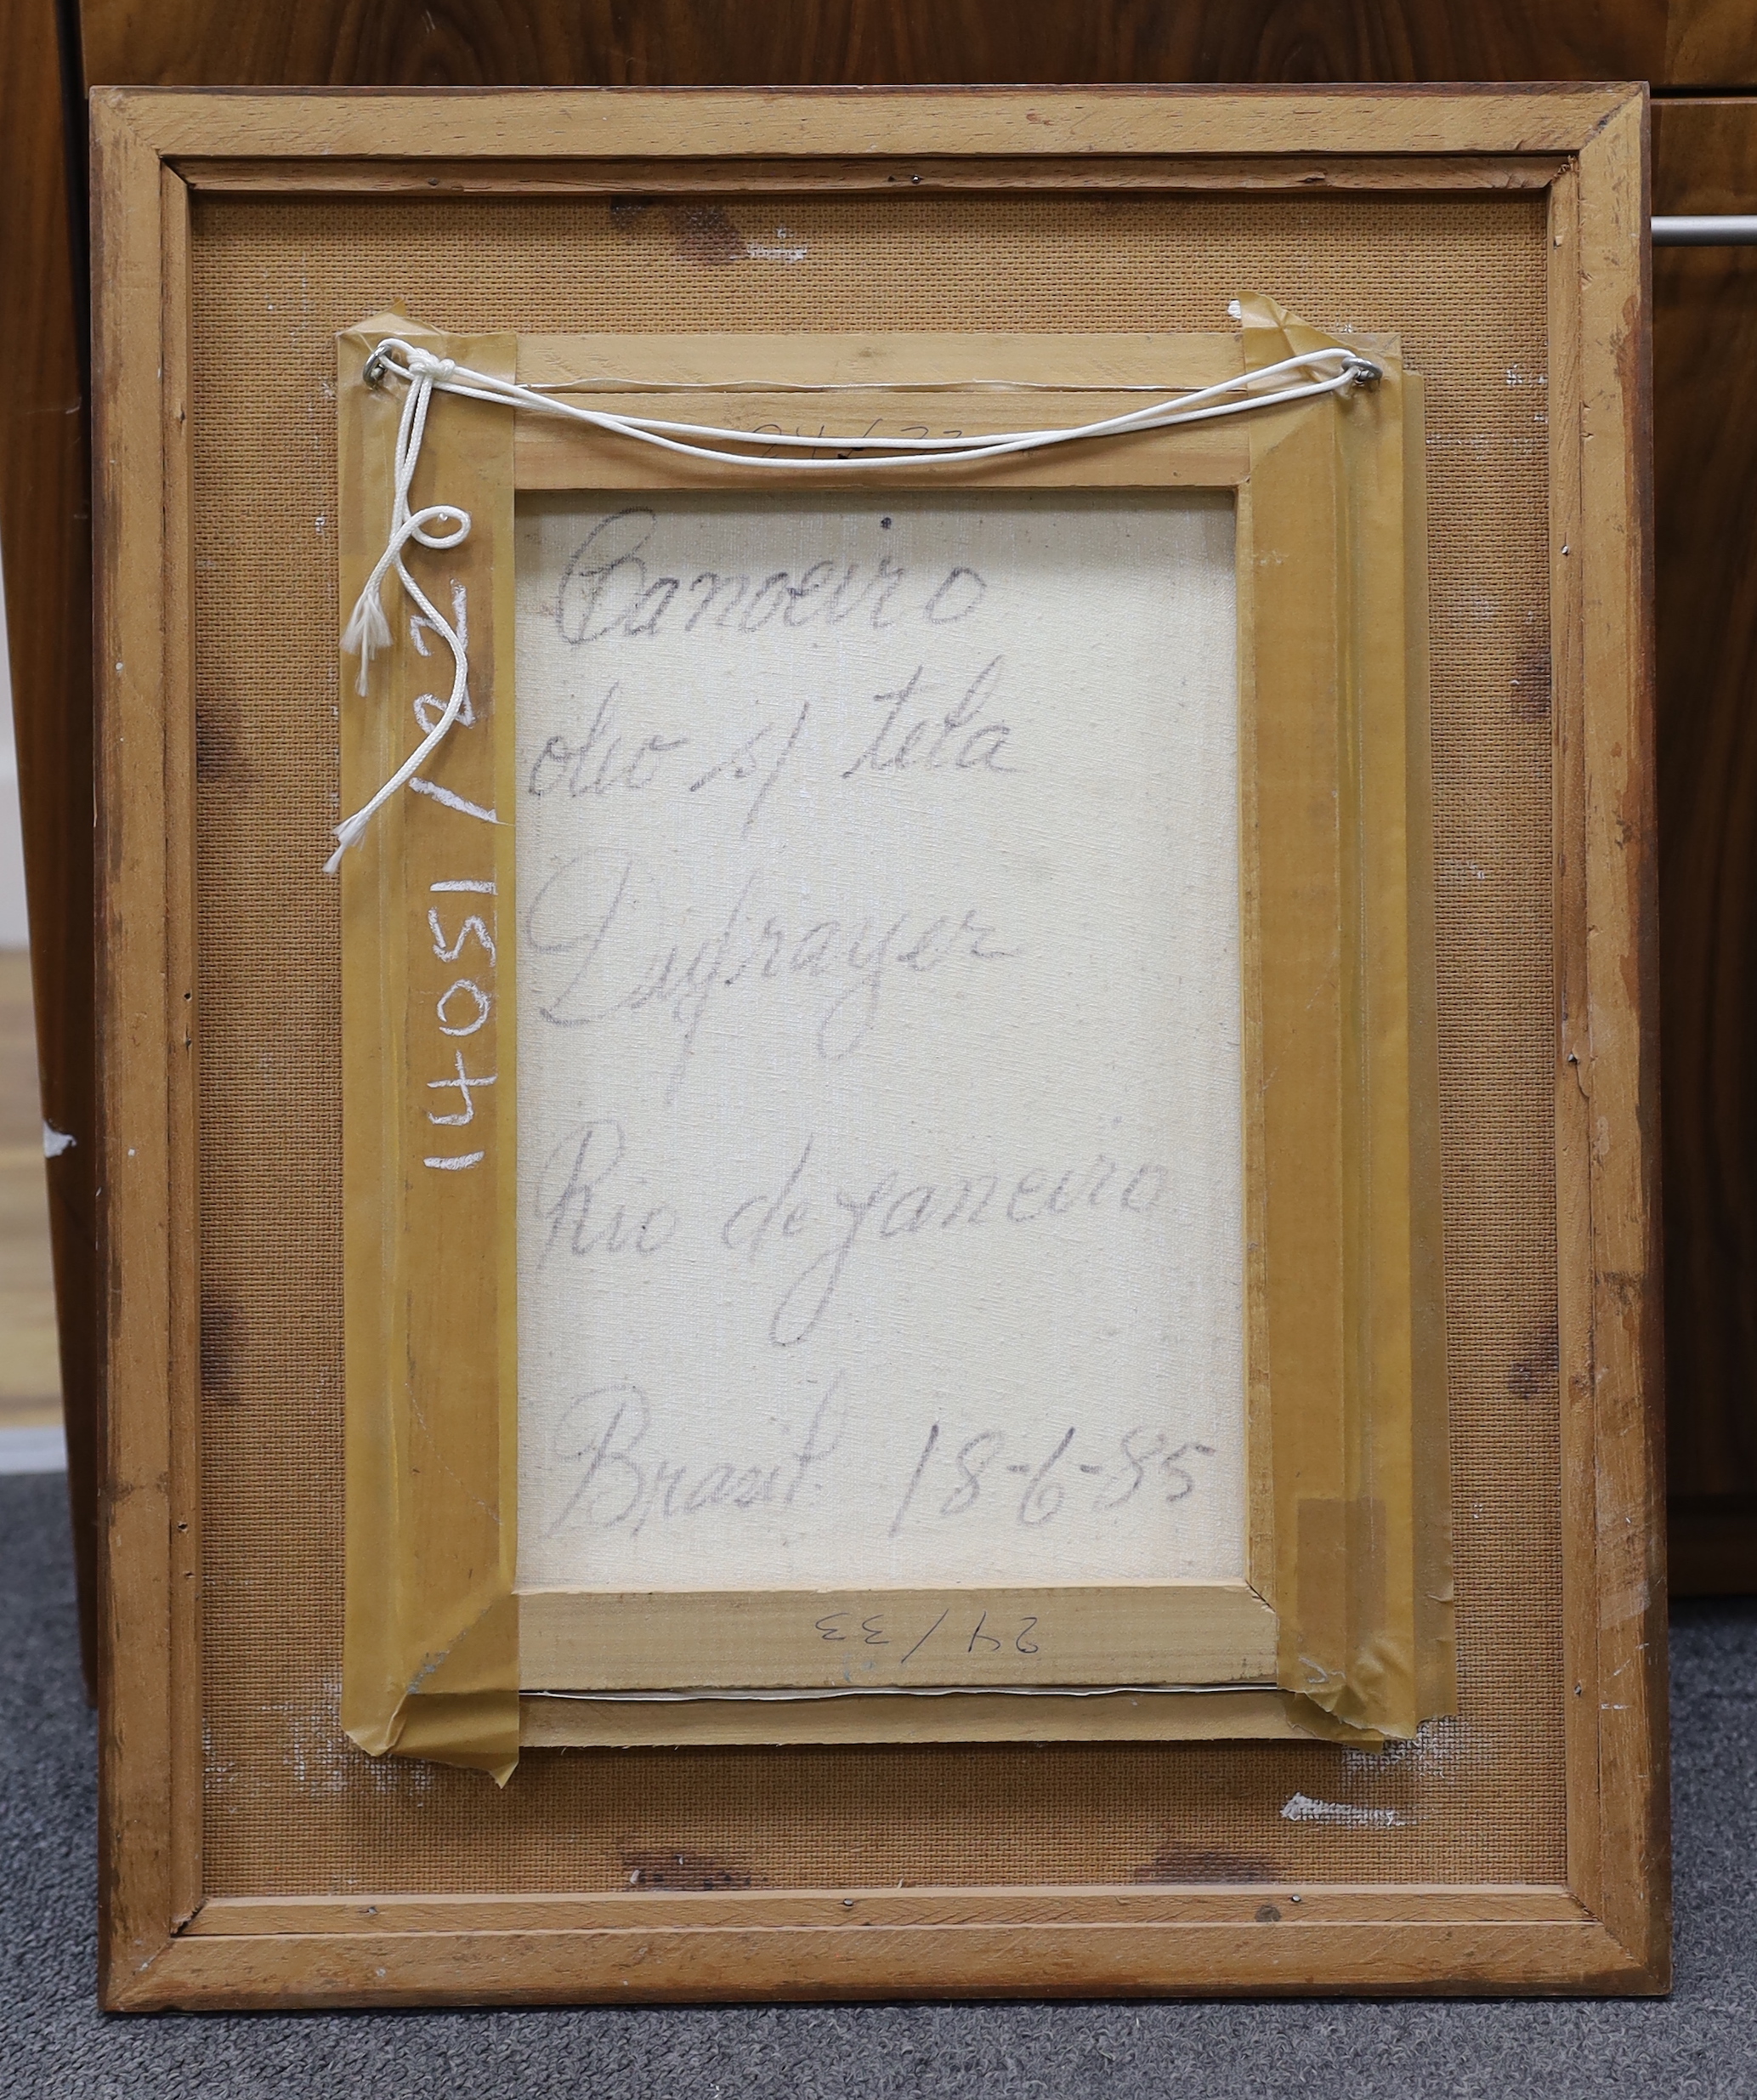 Canoeiro
oleo s/ tela
Dufrayer
Rio de Janeiro
Brasil 18-6-85
14051/22
24/33